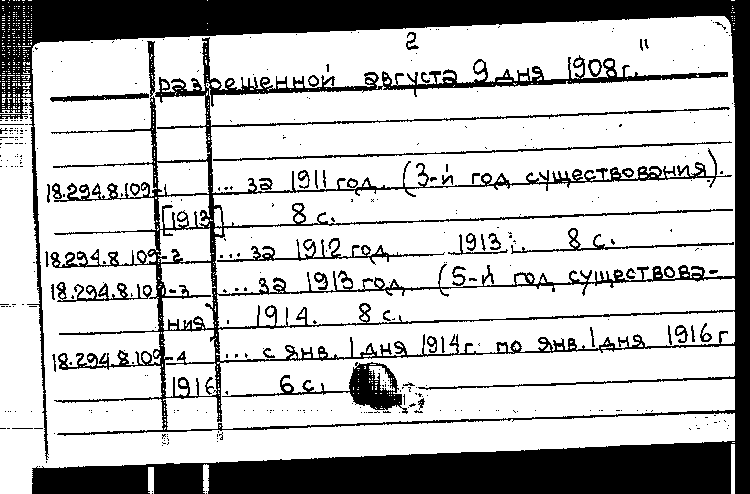 2
разрешенной августа 9 дня 1908 г."
18.294.8.109-1 ... за 1911 год. (3-й год существования).
[1913]. 8 с.
18.294.8.109-2 ... за 1912 год 1913. 8 с.
18.294.8.109-3 ... за 1913 год (5-й год существова-
ния). 1914. 8 с.
18.294.8.109-4 ... с янв. 1 дня 1914 г. по янв. 1 дня 1916 г
1916. 6 с.